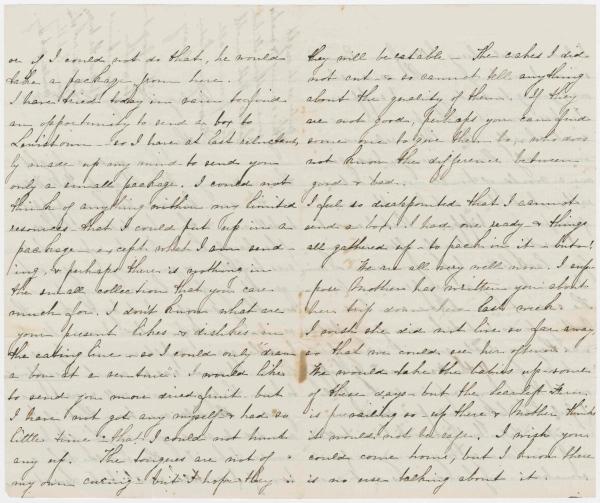 or if I could not do that, he would
take a package from here.
I have tried today in vain to find
an opportunity to send a box to
Lewistown - so I have at last reluctant
ly made up my mind to send you
only a small package. I could not
think of anything within my limited
resources that I could put up in a
package except what I am send-
ing, & perhaps there is nothing in
the small collection that you care
much for. I don't know what are
your present likes & dislikes in
the eating line - so I could only "draw
a bow at a venture". I would like
to send you more dried fruit but
I have not got any myself & had so
little time that I could not hunt
any up. The tongues are not of
my own curing but I hope they
they will be eatable - The cakes I did
not cut - & so cannot tell anything
about the quality of them. If they
are not good, perhaps you can find
some one to give them to, who does
not know the difference between
good & bad.
I feel so disappointed that I cannot
send a box. I had one ready & things
all gathered up to pack in it - but
We are all very well now. I sup-
pose Mother has written you about
her trip down here last week.
I wish she did not live so far away
so that we could see her oftener.
We would take the babies up some
of these days - but the Scarlet Fever
is prevailing so up there & Mother thinks
it would not be safe. I wish you
could come home, but I know there
is no use talking about it.